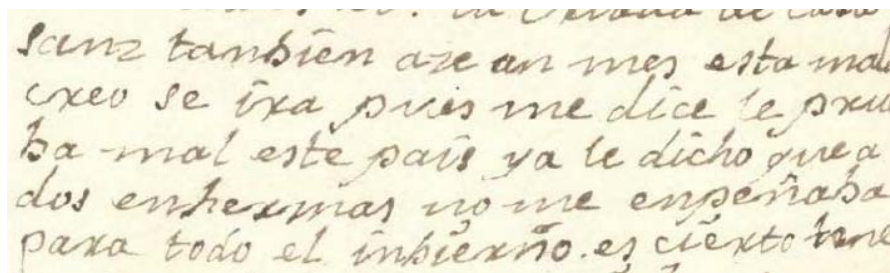 la Criada de casa
sanz tanbien aze un mes esta mal
creo se ira pues me dice le pru
ba mal este pais ya le dicho que a
dos enhermas no me enpeñaba
para todo el inbierño. es cierto tene